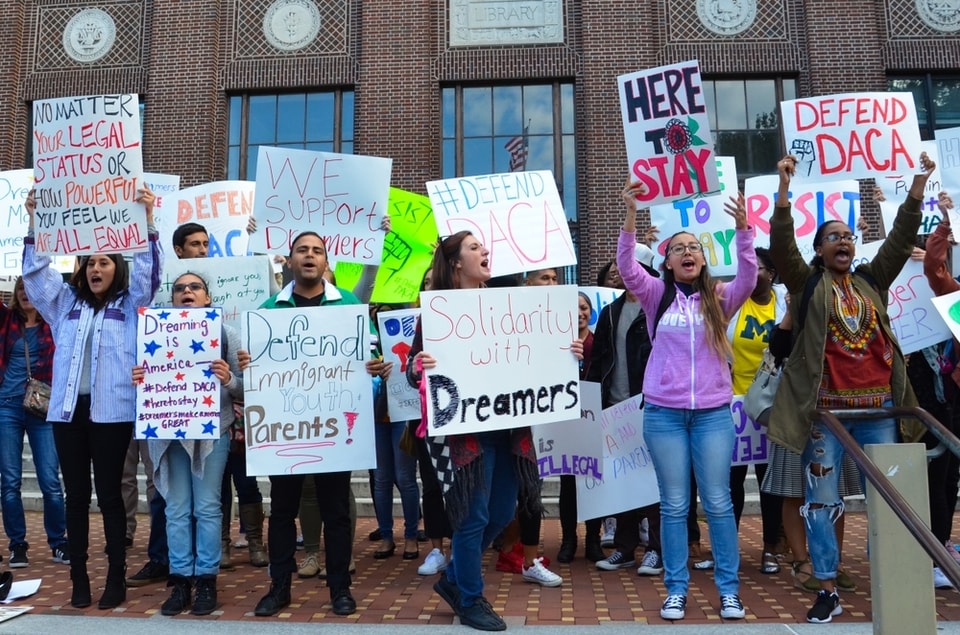 LIBRARY
NO MATTER
YOUR LEGAL
STATUS OR
HOW POWERFUL
YOU FEEL WE
ARE ALL EQUAL
DEFEN
DACA
WE
Support
Dreamers
#DEFEND
DACA
HERE
TO
STAY
DEFEND
DACA
TO
STAY
RESIST
Dreaming is
America
#Defend DACA
#heretostay
#Dreamersmakeamerica
GREAT
Defend
Immigrant
Youth
Parents!
Solidarity
with
Dreamers
IS
ILLEGAL
M